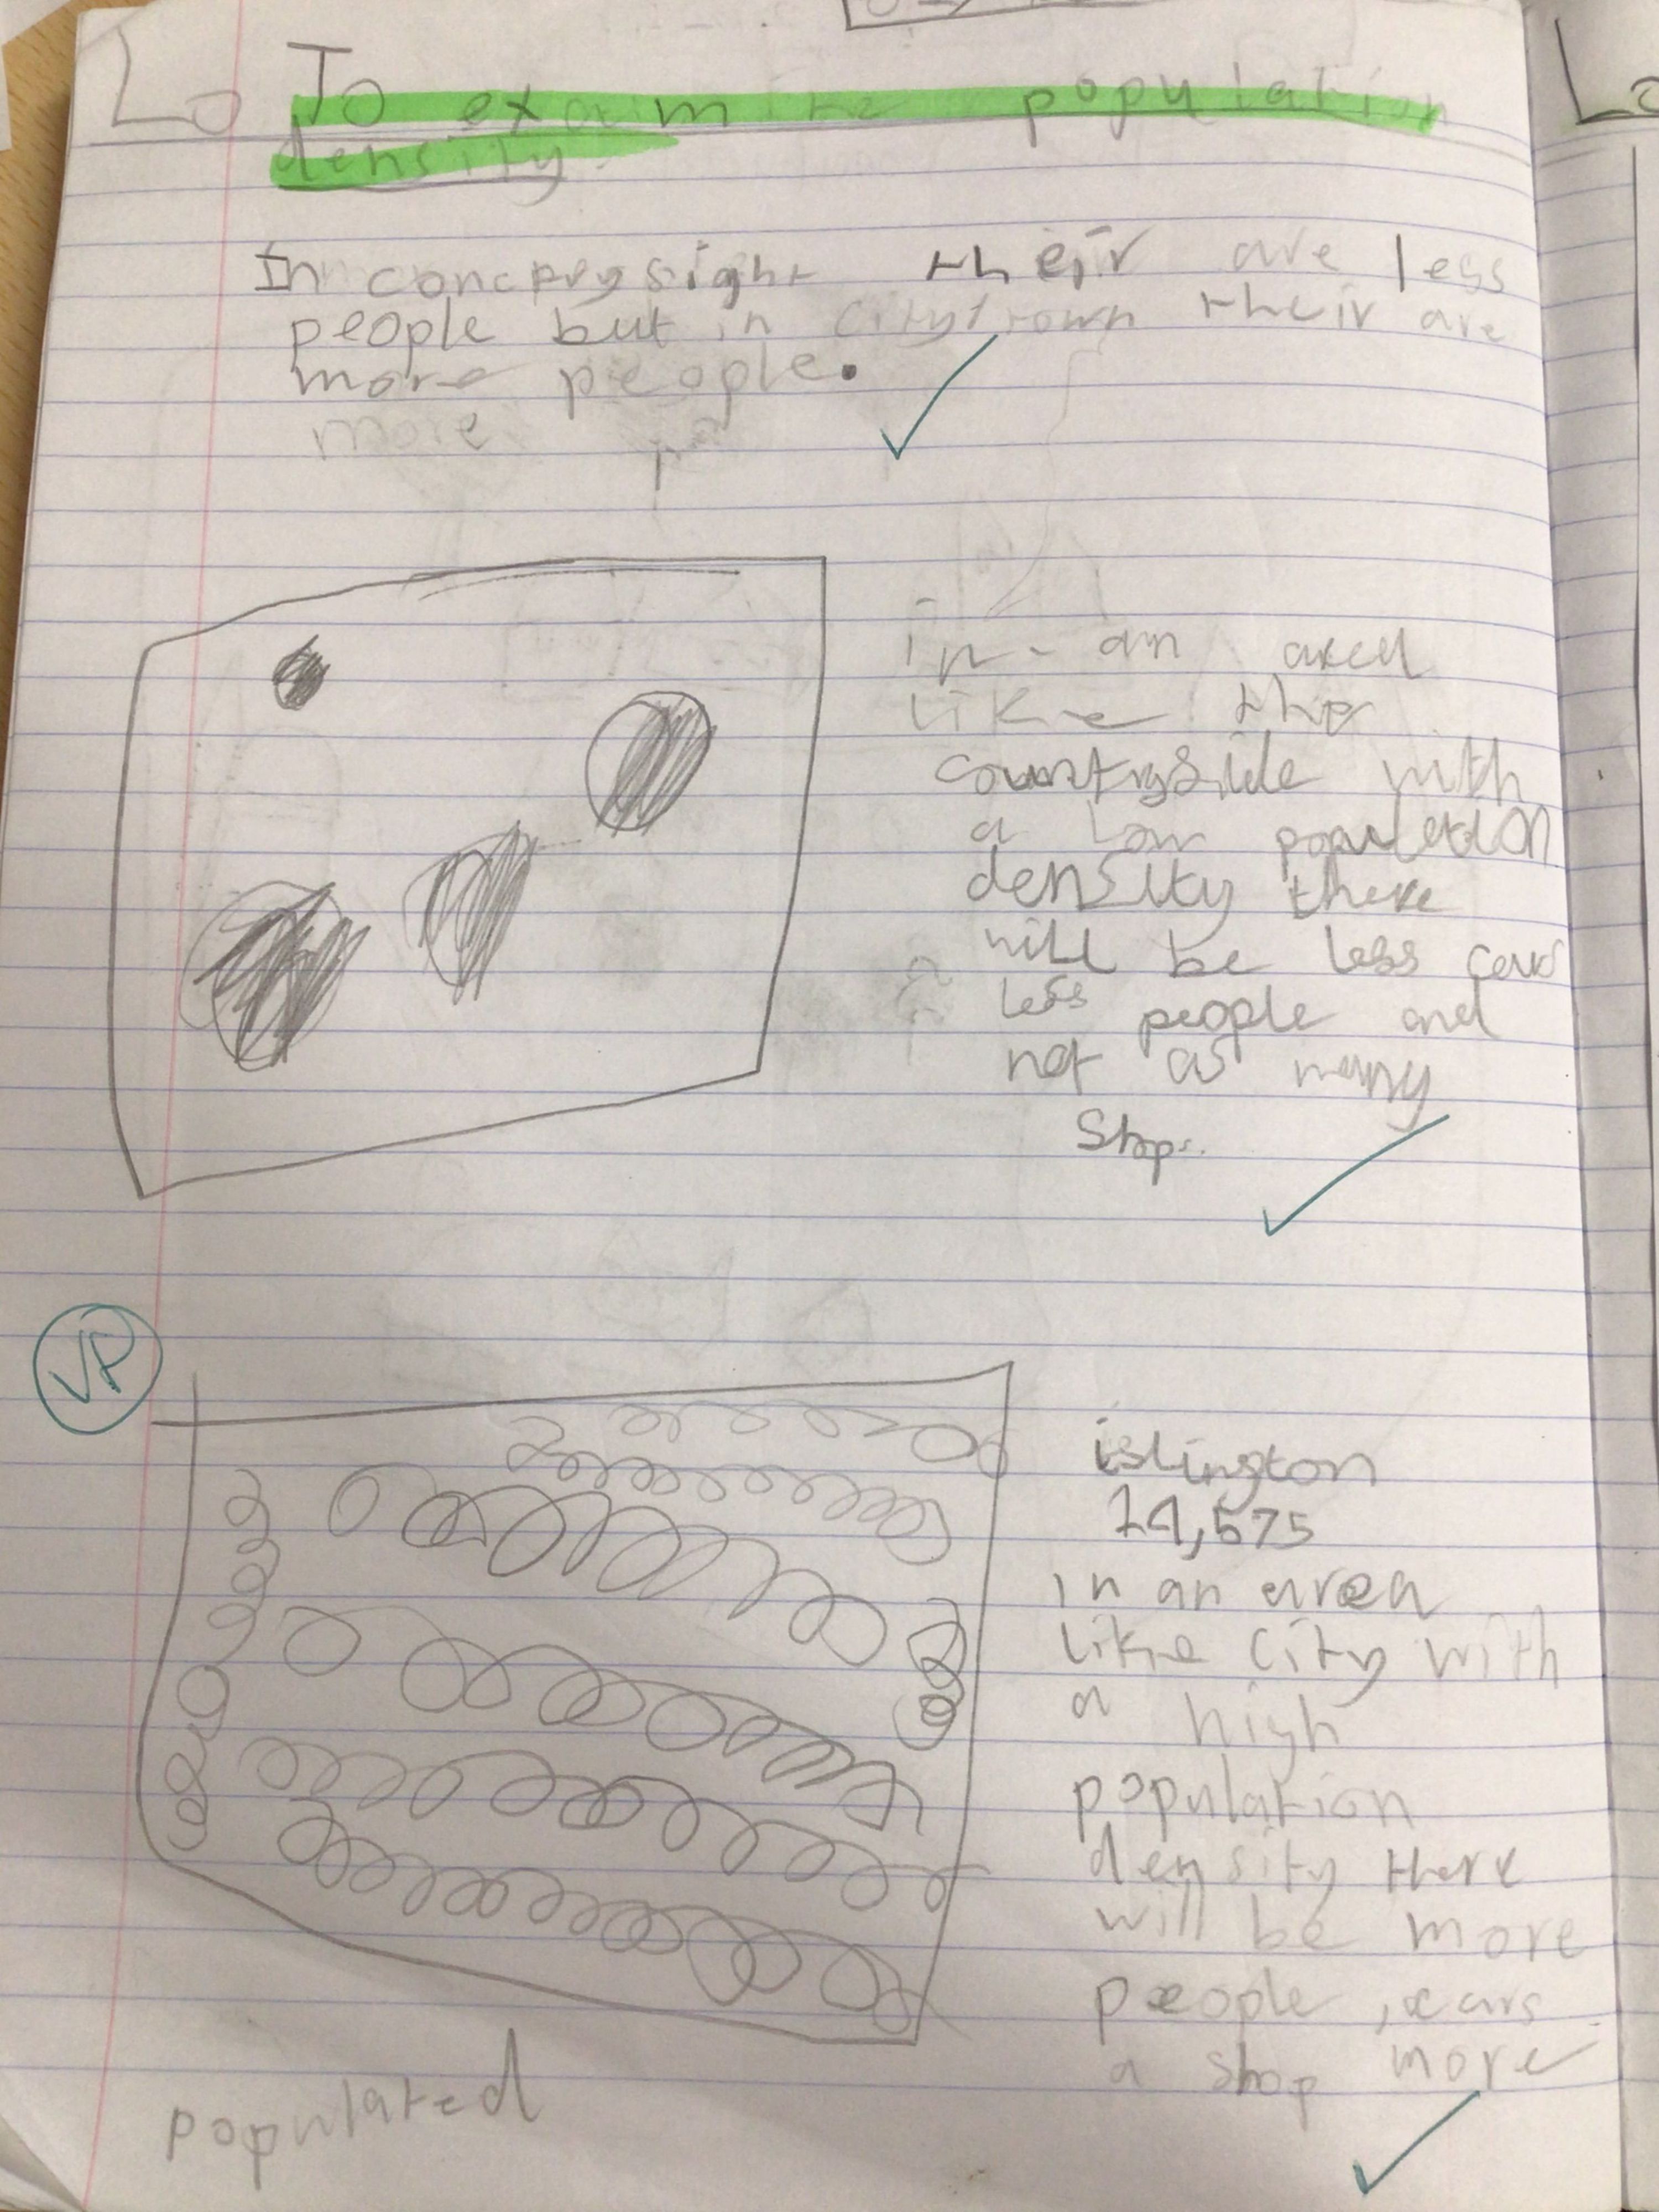 Lo To examine population
density.
In concrysight their are less
people but in city/town their are
more people.
more
in an area
like the
countryside with
a low population
density there
will be less cars
less people and
not as many
Shops.
VF
islington
14,575
in an area
like city with
a high
population
density there
will be more
people, cars
a shop more
populated
Lo